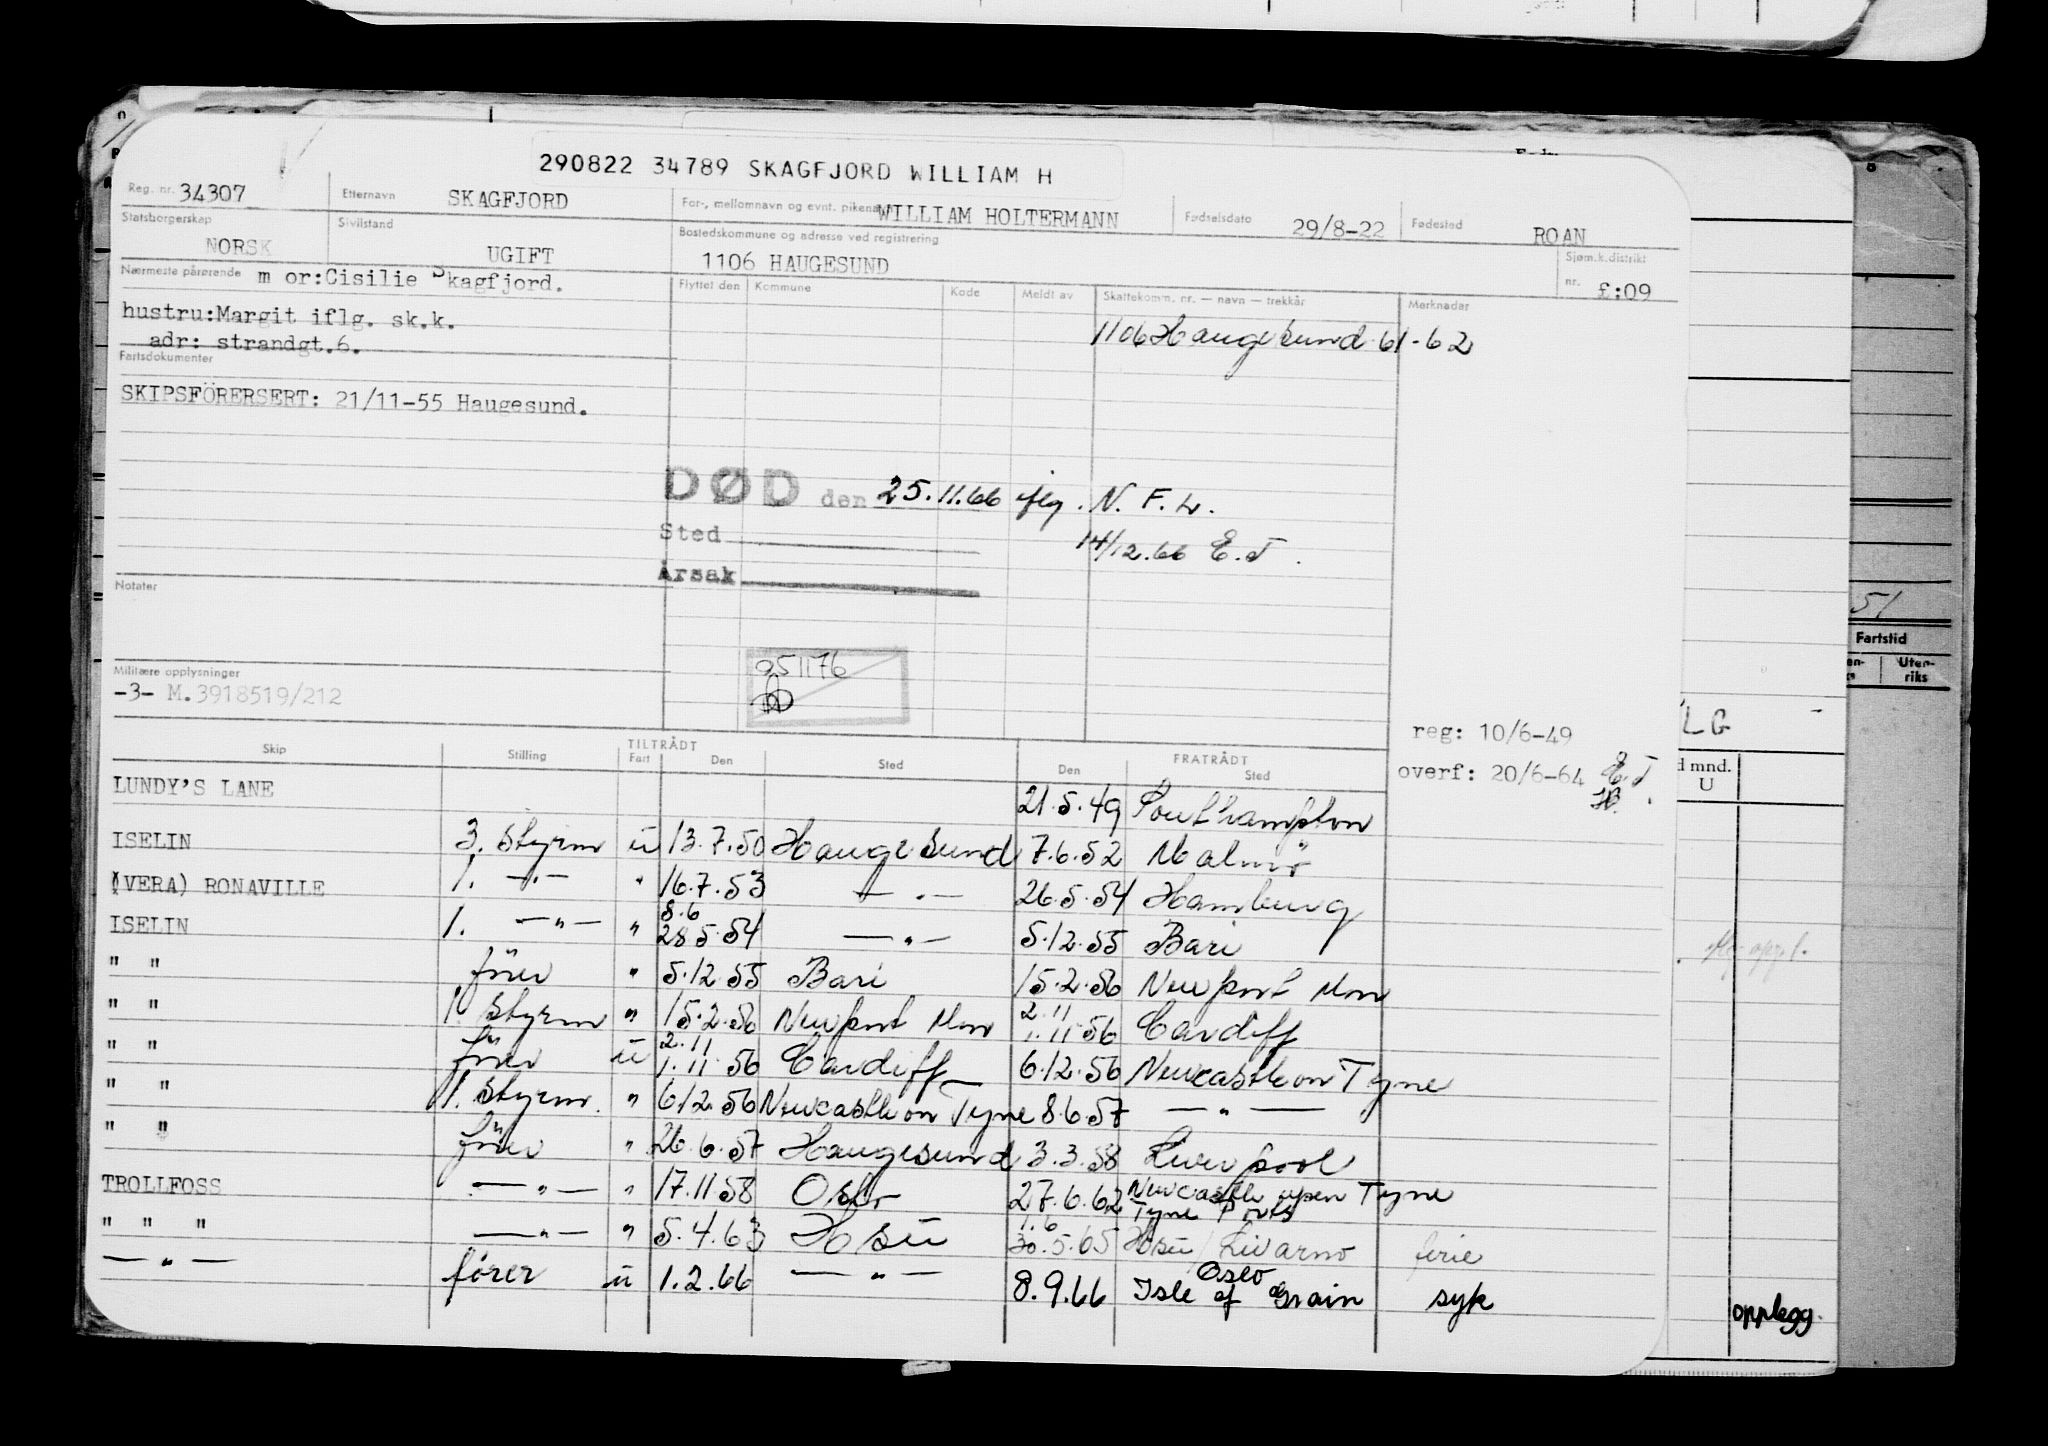 290822 34789 SKAGFJORD WILLIAM H
Reg. nr. 34307 Etternavn SKAGFJORD For-, mellomnavn og evnt. pikenavn WILLIAM HOLTERMANN Fødselsdato 29/8-22 Fødested ROAN
Statsborgerskap NORSK Sivilstand UGIFT Bostedskommune og adresse ved registrering 1106 HAUGESUND Sjøm.k.distrikt nr. £:09
Nærmeste pårørende m or:Cisilie Skagfjord. Flyttet den Kommune Kode Meldt av Skattekomm. nr. — navn — trekkår Merknader
hustru:Margit iflg. sk.k. 1106 Haugesund 61-62
adr: strandgt.6.
Fartsdokumenter
SKIPSFÖRERSERT: 21/11-55 Haugesund.
DØD den 25.11.66 iflg. N. F. L.
Sted 14/12.66 E.T.
Årsak
Notater
51
Fartstid
Uten-
riks
951176
Militære opplysninger
-3- M.3918519/212
reg: 10/6-49
overf: 20/6-64 E.T.
HB.
LG -
d mnd.
U
Skip Stilling TILTRÅDT Fart Den Sted FRATRÅDT Den Sted
LUNDY'S LANE 21.5.49 Southampton
ISELIN 3. Styrm ü 13.7.50 Haugesund 7.6.52 Malmö
(VERA) RONAVILLE 1. —"— " 16.7.53 —"— 26.5.54 Hamburg
8.6
ISELIN 1. —"— " 28.5.54 —"— 5.12.55 Bari
" " förer " 5.12.55 Bari 15.2.56 Newport Mon
2.11
" " 1. Styrm " 15.2.56 Newport Mon 1.11.56 Cardiff
2.11
" " förer ü 1.11.56 Cardiff 6.12.56 Newcastle on Tyne
" " 1. Styrm. " 6.12.56 Newcastle on Tyne 8.6.57 —"—
" " förer " 26.6.57 Haugesund 3.3.58 Liverpool
TROLLFOSS —"— " 17.11.58 Oslo 27.6.62 Newcastle upon Tyne
Tyne Ports
1.6
" " " —"— " 5.4.63 Hsu 30.5.65 Hsu / Livarno ferie
Oslo
—"— förer ü 1.2.66 —"— 8.9.66 Isle of Grain syk
opplegg.